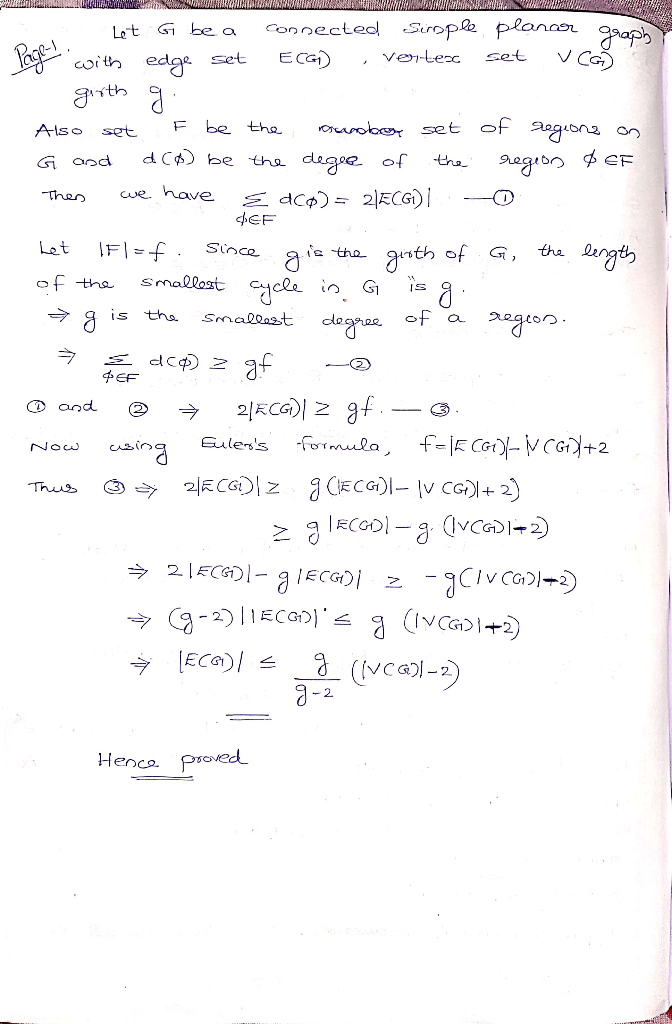 Let G be a connected simple planar graph
Page-1. with edge set E(G), vertex set V(G)
girth g.
Also set F be the number set of regions on
G and d(φ) be the degree of the region φ∈F
Then we have Σ d(φ) = 2|E(G)| —①
φ∈F
Let |F|=f. Since g is the girth of G, the length
of the smallest cycle in G is g.
⇒ g is the smallest degree of a region.
⇒ Σ d(φ) ≥ gf —②
φ∈F
① and ② ⇒ 2|E(G)| ≥ gf. — ③.
Now using Euler's formula, f=|E(G)|-|V(G)|+2
Thus ③ ⇒ 2|E(G)| ≥ g(|E(G)|-|V(G)|+2)
≥ g|E(G)|-g.(|V(G)|+2)
⇒ 2|E(G)|-g|E(G)| ≥ -g(|V(G)|+2)
⇒ (g-2)||E(G)| ≤ g (|V(G)|+2)
⇒ |E(G)| ≤ g/g-2 (|V(G)|-2)
Hence proved